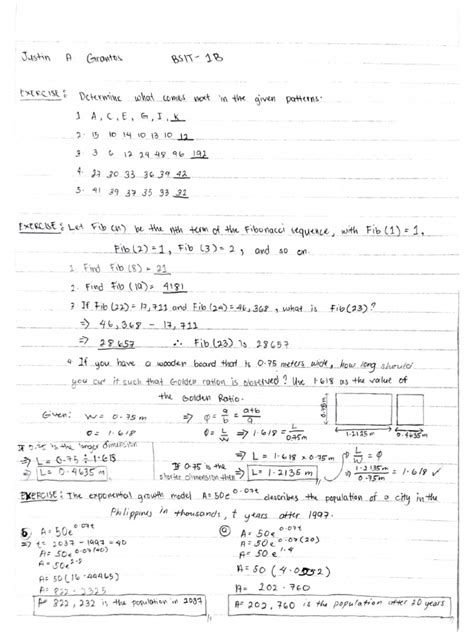 Justin A Grantos BSIT - 1B
EXERCISE: Determine what comes next in the given patterns.
1. A, C, E, G, I, K
2. 15 10 14 10 13 10 12
3. 3 6 12 24 48 96 192
4. 27 30 33 36 39 42
5. 41 39 37 35 33 31
EXERCISE: Let Fib (n) be the nth term of the Fibonacci sequence, with Fib (1) = 1,
Fib (2) = 1, Fib (3) = 2, and so on.
1. Find Fib (8) = 21
2. Find Fib (19) = 4181
3. If Fib (22) = 17,711 and Fib (24) = 46,368, what is Fib(23)?
⇒ 46,368 - 17,711
⇒ 28657 ∴ Fib (23) is 28657
4. If you have a wooden board that is 0.75 meters wide, how long should
you cut it such that Golden ration is observed? Use 1.618 as the value of
the Golden Ratio.
Given: W = 0.75m ⇒ φ = a/b = a+b/a
φ = 1.618 φ = L/W ⇒ 1.618 = L/0.75m
0.75m 1.2135m 0.4635m
If 0.75 is the longer dimension
⇒ L = 0.75 ÷ 1.618
⇒ L = 0.4635 m
If 0.75 is the shorter dimension then
⇒ L = 1.618 x 0.75m
⇒ L = 1.2135 m
φ = L/W
⇒ 1.2135m/0.75m = 1.618 ✓
EXERCISE: The exponential growth model A = 50e^0.07t describes the population of a city in the
Philippines in thousands, t years after 1997.
b A = 50e^0.07t
⇒ t = 2037 - 1997 = 40
A = 50e^0.07(40)
A = 50e^2.8
A = 50 (16.44465)
A = 822.2325
A = 822,232 is the population in 2037
a A = 50e^0.07t
A = 50e^0.07(20)
A = 50e^1.4
A = 50 (4.0552)
A = 202.760
A = 202,760 is the population after 20 years